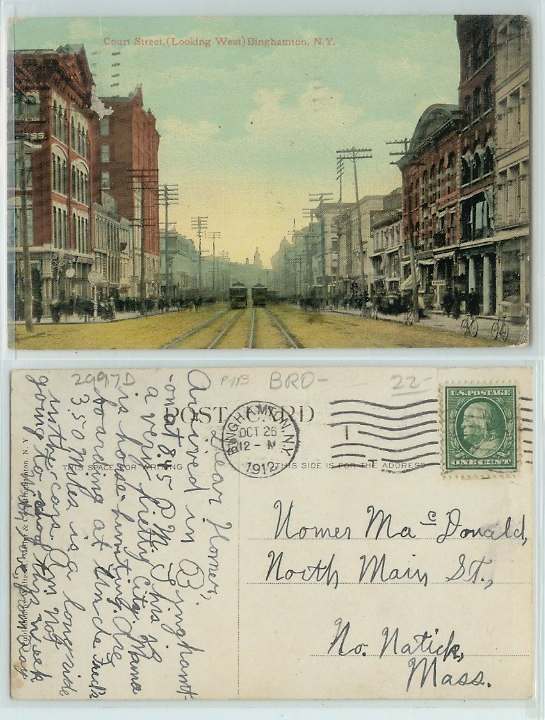 Court Street, (Looking West) Binghamton, N.Y.
2997D
P113
BRO-
22-
POST CARD
THE SPACE FOR WRITING
THIS SIDE IS FOR THE ADDRESS
BINGHAMTON, N.Y.
OCT 26
12-M
1912
1
T
U.S. POSTAGE
ONE CENT
Dear Homer,
Arrived in Binghamt-
on at 8:45 P.M. This is
a very pretty city. Mama
is house hunting. Are
boarding at Uncle
350 miles is a long ride
in the cars. I'm not
going to this week
Homer Mac Donald,
North Main St.,
No. Natick,
Mass.